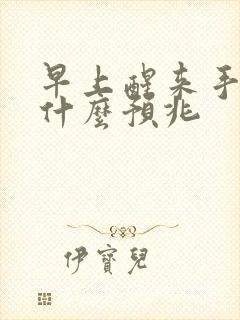 早上醒来手
什麼預兆
伊寶兒